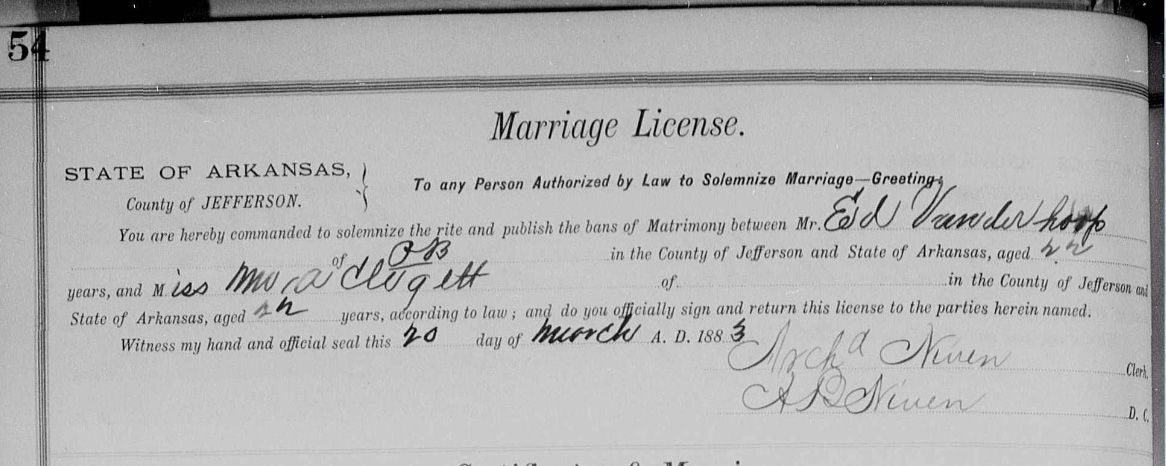 54
Marriage License.
STATE OF ARKANSAS,
County of JEFFERSON.
To any Person Authorized by Law to Solemnize Marriage—Greeting:
You are hereby commanded to solemnize the rite and publish the bans of Matrimony between Mr. Ed Vanderhoop
of P B in the County of Jefferson and State of Arkansas, aged 22
years, and Miss Clogett of in the County of Jefferson and
State of Arkansas, aged 22 years, according to law; and do you officially sign and return this license to the parties herein named.
Witness my hand and official seal this 20 day of March A. D. 1883
Archd Niven Clerk.
A B Niven D. C.